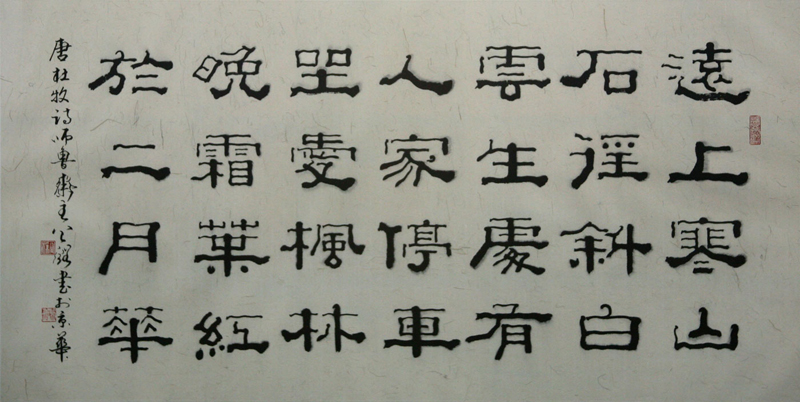 遠上寒山
石徑斜白
雲生處有
人家停車
坐愛楓林
晚霜葉紅
於二月華
唐杜牧詩師魯齋主書於京華